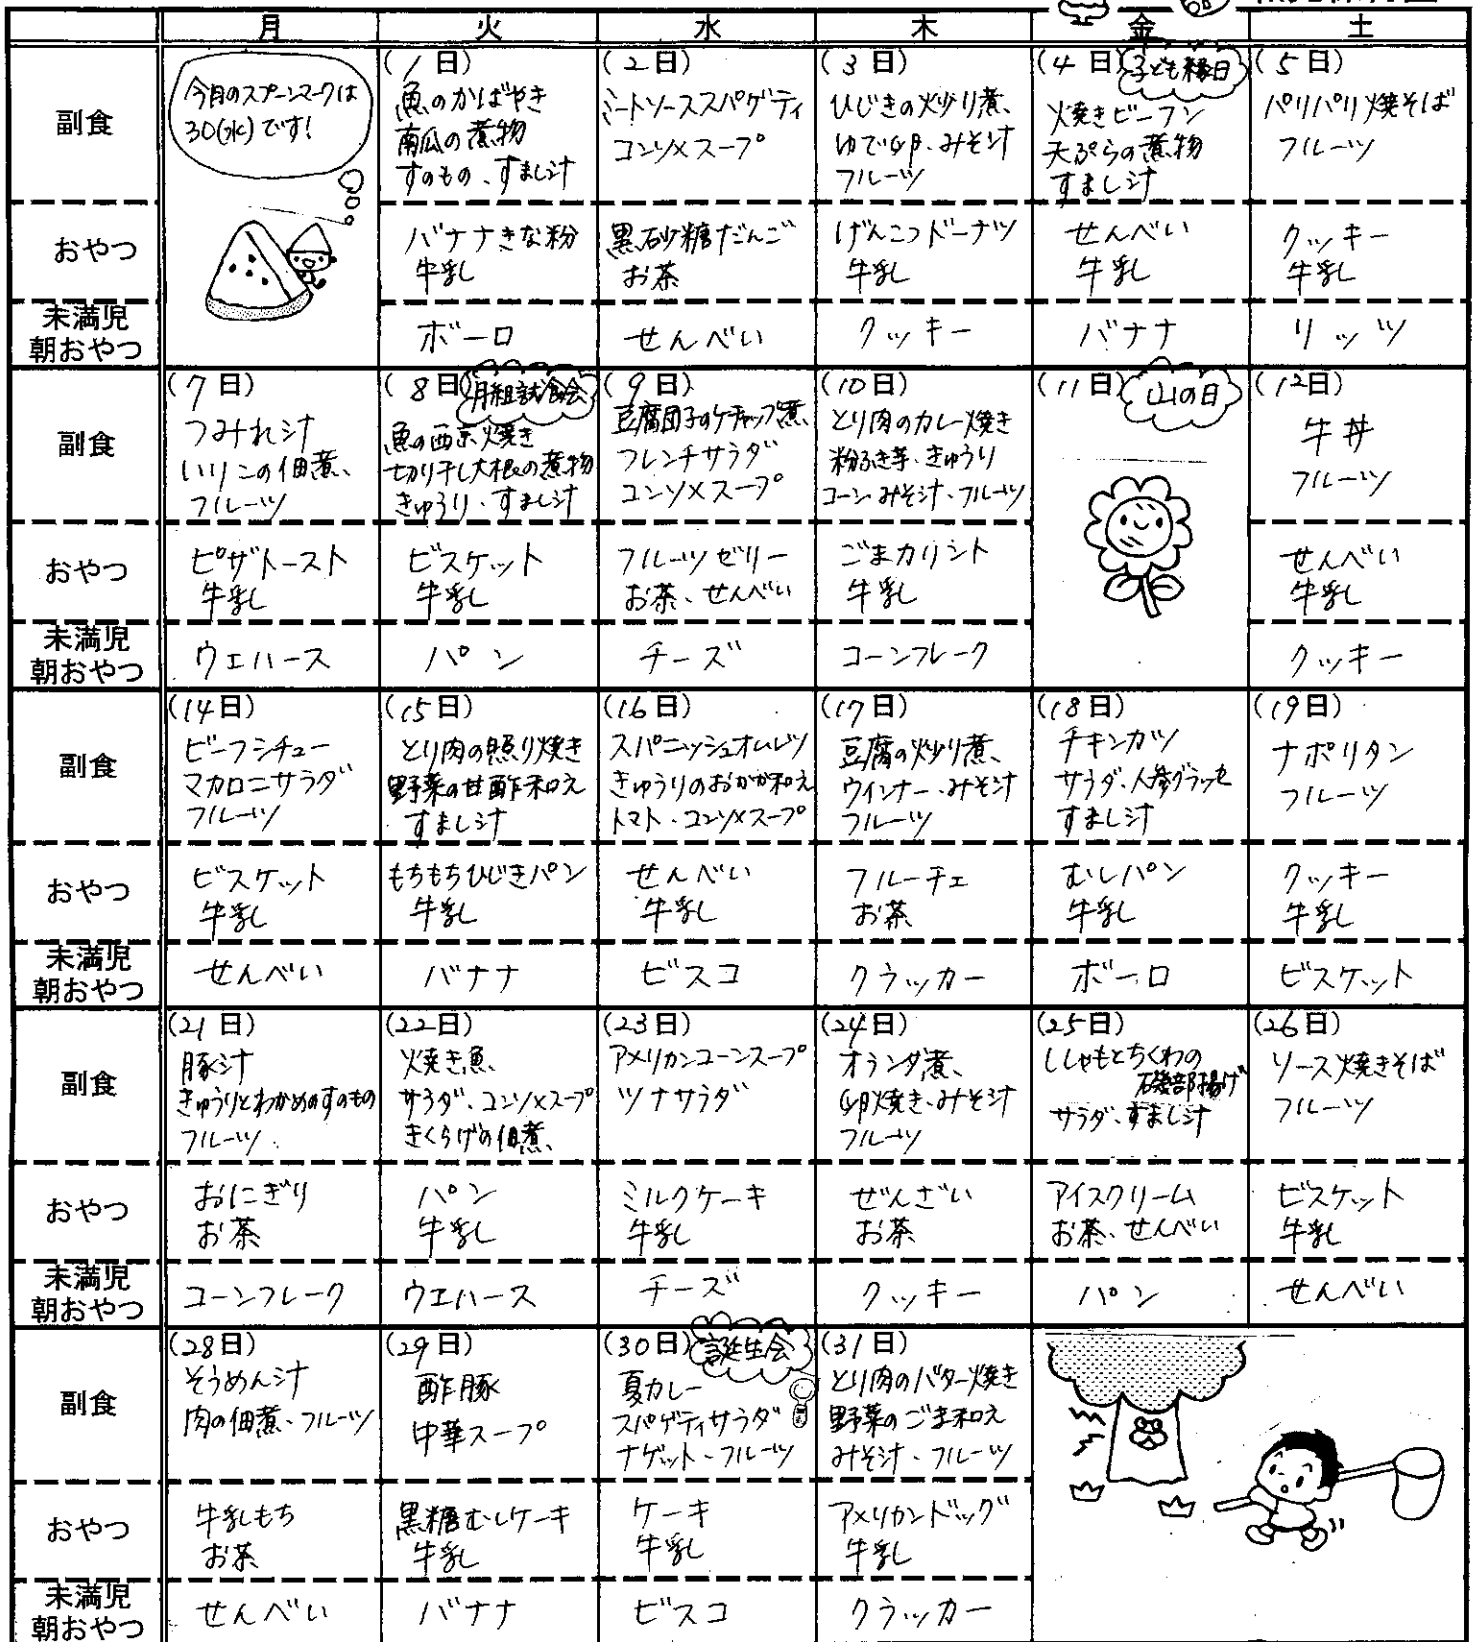 月 火 水 木 金 土
副食
今月のスプーンマークは
30(水)です!
(1日)
魚のかばやき
南瓜の煮物
すのもの、すまし汁
(2日)
ミートソーススパゲティ
コンソメスープ
(3日)
ひじきの炒り煮、
ゆで卵、みそ汁
フルーツ
(4日)
子ども縁日
焼きビーフン
天ぷらの煮物
すまし汁
(5日)
パリパリ焼そば
フルーツ
おやつ
バナナきな粉
牛乳
黒砂糖だんご
お茶
げんこつドーナツ
牛乳
せんべい
牛乳
クッキー
牛乳
未満児
朝おやつ
ボーロ
せんべい
クッキー
バナナ
リッツ
副食
(7日)
つみれ汁
いりこの佃煮、
フルーツ
(8日)
月組試食会
魚の西京焼き
切り干し大根の煮物
きゅうり、すまし汁
(9日)
豆腐団子のケチャップ煮、
フレンチサラダ
コンソメスープ
(10日)
とり肉のカレー焼き
粉ふき芋、きゅうり
コーン、みそ汁、フルーツ
(11日)
山の日
(12日)
牛丼
フルーツ
おやつ
ピザトースト
牛乳
ビスケット
牛乳
フルーツゼリー
お茶、せんべい
ごまカリント
牛乳
せんべい
牛乳
未満児
朝おやつ
ウエハース
パン
チーズ
コーンフレーク
クッキー
副食
(14日)
ビーフシチュー
マカロニサラダ
フルーツ
(15日)
とり肉の照り焼き
野菜の甘酢和え
すまし汁
(16日)
スパニッシュオムレツ
きゅうりのおかか和え
トマト、コンソメスープ
(17日)
豆腐の炒り煮、
ウインナー、みそ汁
フルーツ
(18日)
チキンカツ
サラダ、人参グラッセ
すまし汁
(19日)
ナポリタン
フルーツ
おやつ
ビスケット
牛乳
もちもちひじきパン
牛乳
せんべい
牛乳
フルーチェ
お茶
むしパン
牛乳
クッキー
牛乳
未満児
朝おやつ
せんべい
バナナ
ビスコ
クラッカー
ボーロ
ビスケット
副食
(21日)
豚汁
きゅうりとわかめのすのもの
フルーツ
(22日)
焼き魚、
サラダ、コンソメスープ
きくらげの佃煮、
(23日)
アメリカンコーンスープ
ツナサラダ
(24日)
オランダ煮、
卵焼き、みそ汁
フルーツ
(25日)
ししゃもとちくわの
磯部揚げ
サラダ、すまし汁
(26日)
ソース焼きそば
フルーツ
おやつ
おにぎり
お茶
パン
牛乳
ミルクケーキ
牛乳
ぜんざい
お茶
アイスクリーム
お茶、せんべい
ビスケット
牛乳
未満児
朝おやつ
コーンフレーク
ウエハース
チーズ
クッキー
パン
せんべい
副食
(28日)
そうめん汁
肉の佃煮、フルーツ
(29日)
酢豚
中華スープ
(30日)
誕生会
夏カレー
スパゲティサラダ
ナゲット、フルーツ
(31日)
とり肉のバター焼き
野菜のごま和え
みそ汁、フルーツ
おやつ
牛乳もち
お茶
黒糖むしケーキ
牛乳
ケーキ
牛乳
アメリカンドッグ
牛乳
未満児
朝おやつ
せんべい
バナナ
ビスコ
クラッカー